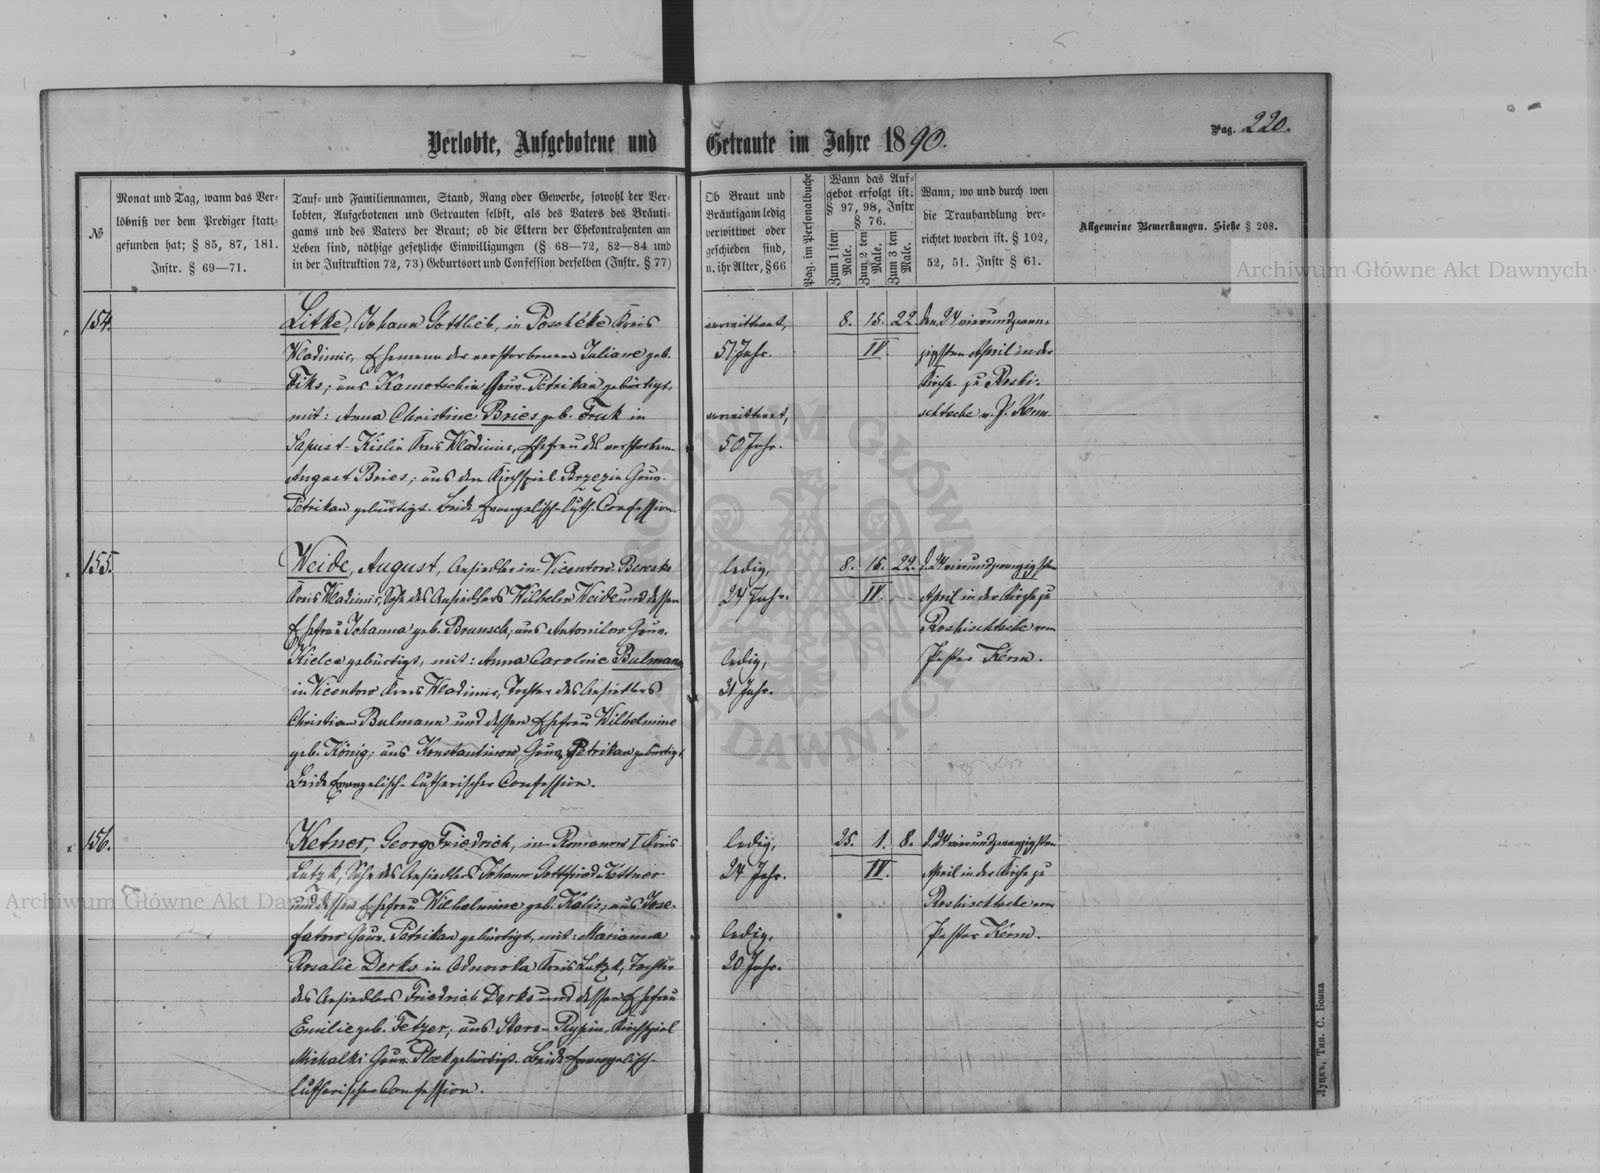 Verlobte, Aufgebotene und Getraute im Jahre 1890.
Pag. 220.
№
Monat und Tag, wann das Ver-
löbniß vor dem Prediger statt-
gefunden hat; § 85, 87, 181.
Instr. § 69—71.
Tauf- und Familiennamen, Stand, Rang oder Gewerbe, sowohl der Ver-
lobten, Aufgebotenen und Getrauten selbst, als des Vaters des Bräuti-
gams und des Vaters der Braut; ob die Eltern der Ehekontrahenten am
Leben sind, nöthige gesetzliche Einwilligungen (§ 68—72, 82—84 und
in der Instruktion 72, 73) Geburtsort und Confession derselben (Instr. § 77)
Ob Braut und
Bräutigam ledig
verwittwet oder
geschieden sind,
u. ihr Alter, § 66
Pag. im Personalbuche
Wann das Auf-
gebot erfolgt ist.
§ 97, 98, Instr
§ 76.
Zum 1 sten
Male.
Zum 2 ten
Male.
Zum 3 ten
Male.
Wann, wo und durch wen
die Trauhandlung ver-
richtet worden ist. § 102,
52, 51. Instr § 61.
Allgemeine Bemerkungen. Siehe § 208.
154.
Litke, Johann Gottlieb, in Kreis
Wladimir, Ehemann der verstorbenen Juliane geb.
Fiks; aus Kamotschin Gouv. Petrikau gebürtigt,
mit: Anna Christine Bries geb. Fruk in
Kreis Wladimir, Ehefrau des verstorbenen
August Bries; aus dem Kirchspiel Brzezin Gouv.
Petrikau gebürtigt. Beide Evangelisch-Luth. Confession.
verwittwet,
51 Jahr.
verwittwet,
50 Jahr.
8. 15. 22.
IV.
den 24 vierundzwan-
zigsten April in der
Kirche zu Roshi-
schtsche v. P. Kerm.
155.
Weide, August, Ansiedler in Vicentow-
Kreis Wladimir, Sohn des Ansiedlers Wilhelm Weide und dessen
Ehefrau Johanna geb. Brunsch; aus Antonilow Gouv.
Kielce gebürtigt, mit: Anna Caroline Bulmann
in Vicentow Kreis Wladimir, Tochter des Ansiedlers
Christian Bulmann und dessen Ehefrau Wilhelmine
geb. König; aus Konstantinow, Gouv. Petrikau gebürtigt
Beide Evangelisch-lutherischer Confession.
ledig,
24 Jahr.
ledig,
31 Jahr.
8. 15. 22.
IV.
d. 24 vierundzwanzigsten
April in der Kirche zu
Roshischtsche vom
Pastor Kerm.
156.
Ketner, Georg Friedrich, in Romanow I Kreis
Lutzk, Sohn des Ansiedlers Johann Gottfried Kettner
und dessen Ehefrau Wilhelmine geb. Kälis; aus Jose-
fatow Gouv. Petrikau gebürtigt, mit: Marianna
Rosalie Derks in Kreis Lutzk, Tochter
des Ansiedlers Friedrich Derks und dessen Ehefrau
Emilie geb. Fetzer; aus Staro- Kirchspiel
Michalki Gouv. Plock gebürtigt. Beide Evangelisch-
lutherischer Confession.
ledig,
24 Jahr.
ledig,
20 Jahr.
25. 1. 8.
IV.
d. 24 vierundzwanzigsten
April in der Kirche zu
Roshischtsche vom
Pastor Kerm.
Луцкъ, Тип. С. Бонка
Archiwum Główne Akt Dawnych
Archiwum Główne Akt Dawnych